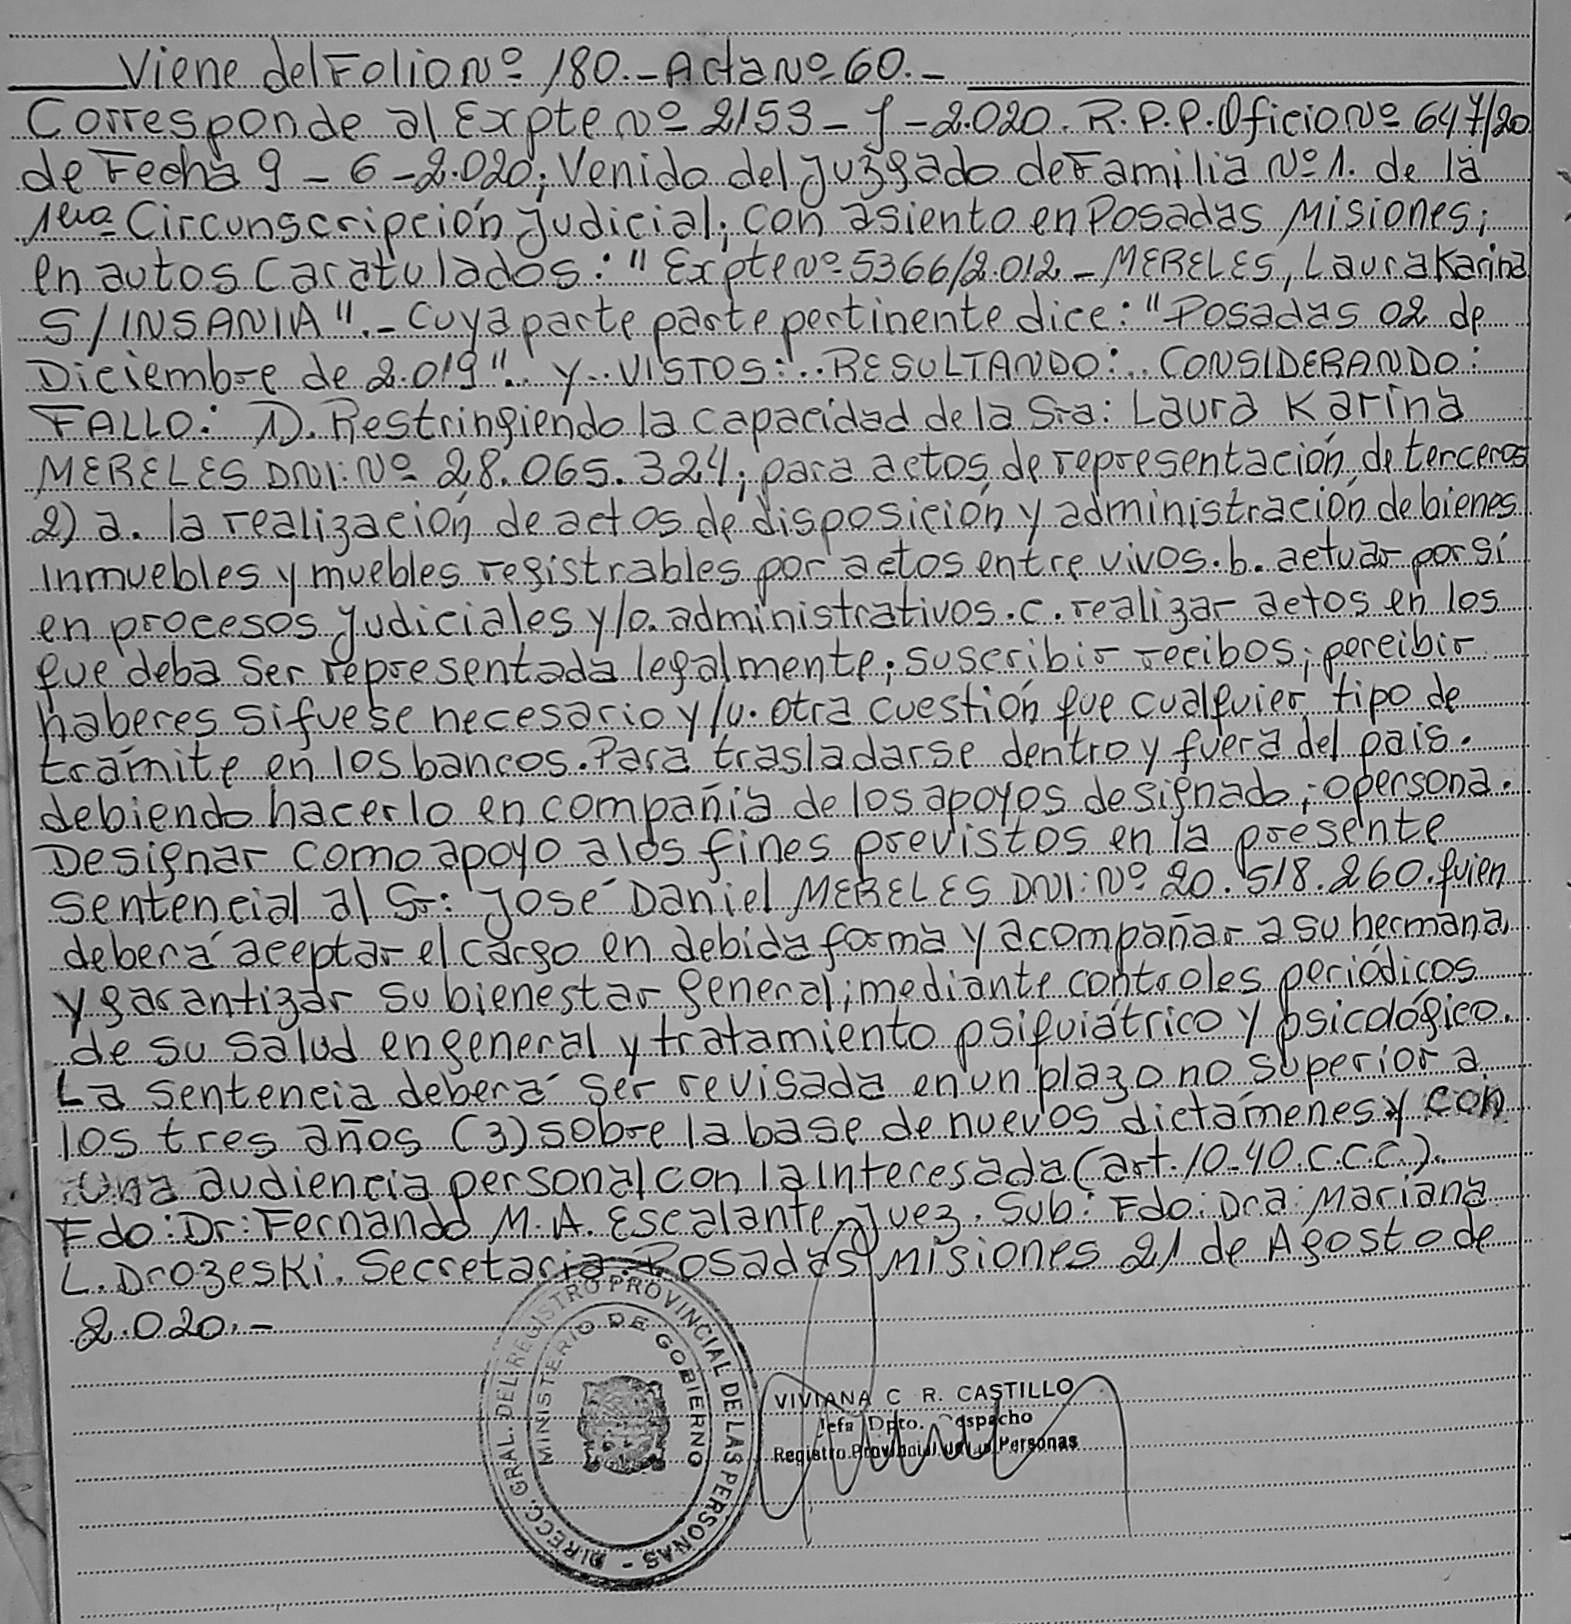 Viene del Folio Nº 180.- Acta Nº 60.-
Corresponde al Expte Nº 2153-J-2.020. R.P.P. Oficio Nº 647/20
de Fecha 9-6-2.020; Venido del Juzgado de Familia Nº 1. de la
1era Circunscripción Judicial; con asiento en Posadas Misiones;
en autos Caratulados: "Expte Nº 5366/2.012 - MERELES, Laura Karina
S/INSANIA".- Cuya parte parte pertinente dice: "Posadas 02 de
Diciembre de 2.019".. y.. VISTOS:.. RESULTANDO:.. CONSIDERANDO:
FALLO: 1). Restringiendo la capacidad de la Sra: Laura Karina
MERELES DNI: Nº 28.065.324; para actos de representación de terceros
2) a. la realización de actos de disposición y administración de bienes
inmuebles y muebles registrables por actos entre vivos. b. actuar por sí
en procesos judiciales y/o. administrativos. c. realizar actos en los
que deba ser representada legalmente; suscribir recibos; percibir
haberes si fuese necesario y/u. otra cuestión que cualquier tipo de
trámite en los bancos. Para trasladarse dentro y fuera del pais.
debiendo hacerlo en compañia de los apoyos designado; o persona.
Designar como apoyo a los fines previstos en la presente
sentencial al Sr: José Daniel MERELES DNI: Nº 20.518.260. quien
deberá aceptar el cargo en debida forma y acompañar a su hermana
y garantizar su bienestar general; mediante controles periódicos
de su salud en general y tratamiento psiquiátrico y psicológico.
La sentencia deberá ser revisada en un plazo no superior a
los tres años (3) sobre la base de nuevos dictámenes y con
una audiencia personal con la interesada (art. 10-40. C.C.C.).
Fdo: Dr: Fernando M.A. Escalante Juez. Sub: Fdo: Dra: Mariana
L. Drozeski. Secretaria. Posadas Misiones 21 de Agosto de
2.020.-
DIRECC. GRAL. DEL REGISTRO PROVINCIAL DE LAS PERSONAS -
MINISTERIO DE GOBIERNO
VIVIANA C R. CASTILLO
Jefa Dpto. Despacho
Registro Provincial de las Personas